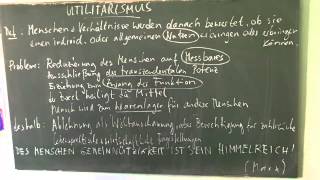 UTILITARISMUS
Def.: Menschen + Verhältnisse werden danach bewertet, ob sie
einen individ. oder allgemeinen Nutzen erbringen oder erbringen
können.
Probleme: Reduzierung des Menschen auf Messbares
Ausschließung des transzendentalen Potenz
Erziehung zum Zwang der Funktion
Zweck heiligt die Mittel
Mensch wird zum Warenlager für andere Menschen
deshalb: Ablehnung als Weltanschauung, aber Berechtigung für zahlreiche
lebenspraktische + gesellschaftliche Fragestellungen
DES MENSCHEN GEMEINNÜTZIGKEIT IST SEIN HIMMELREICH!